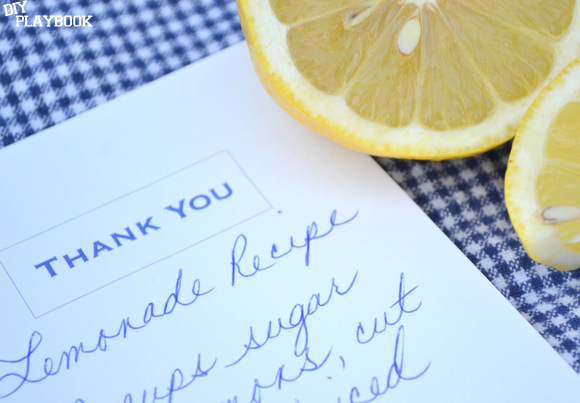 DIY
PLAYBOOK
THANK YOU
Lemonade Recipe
cups sugar
cut